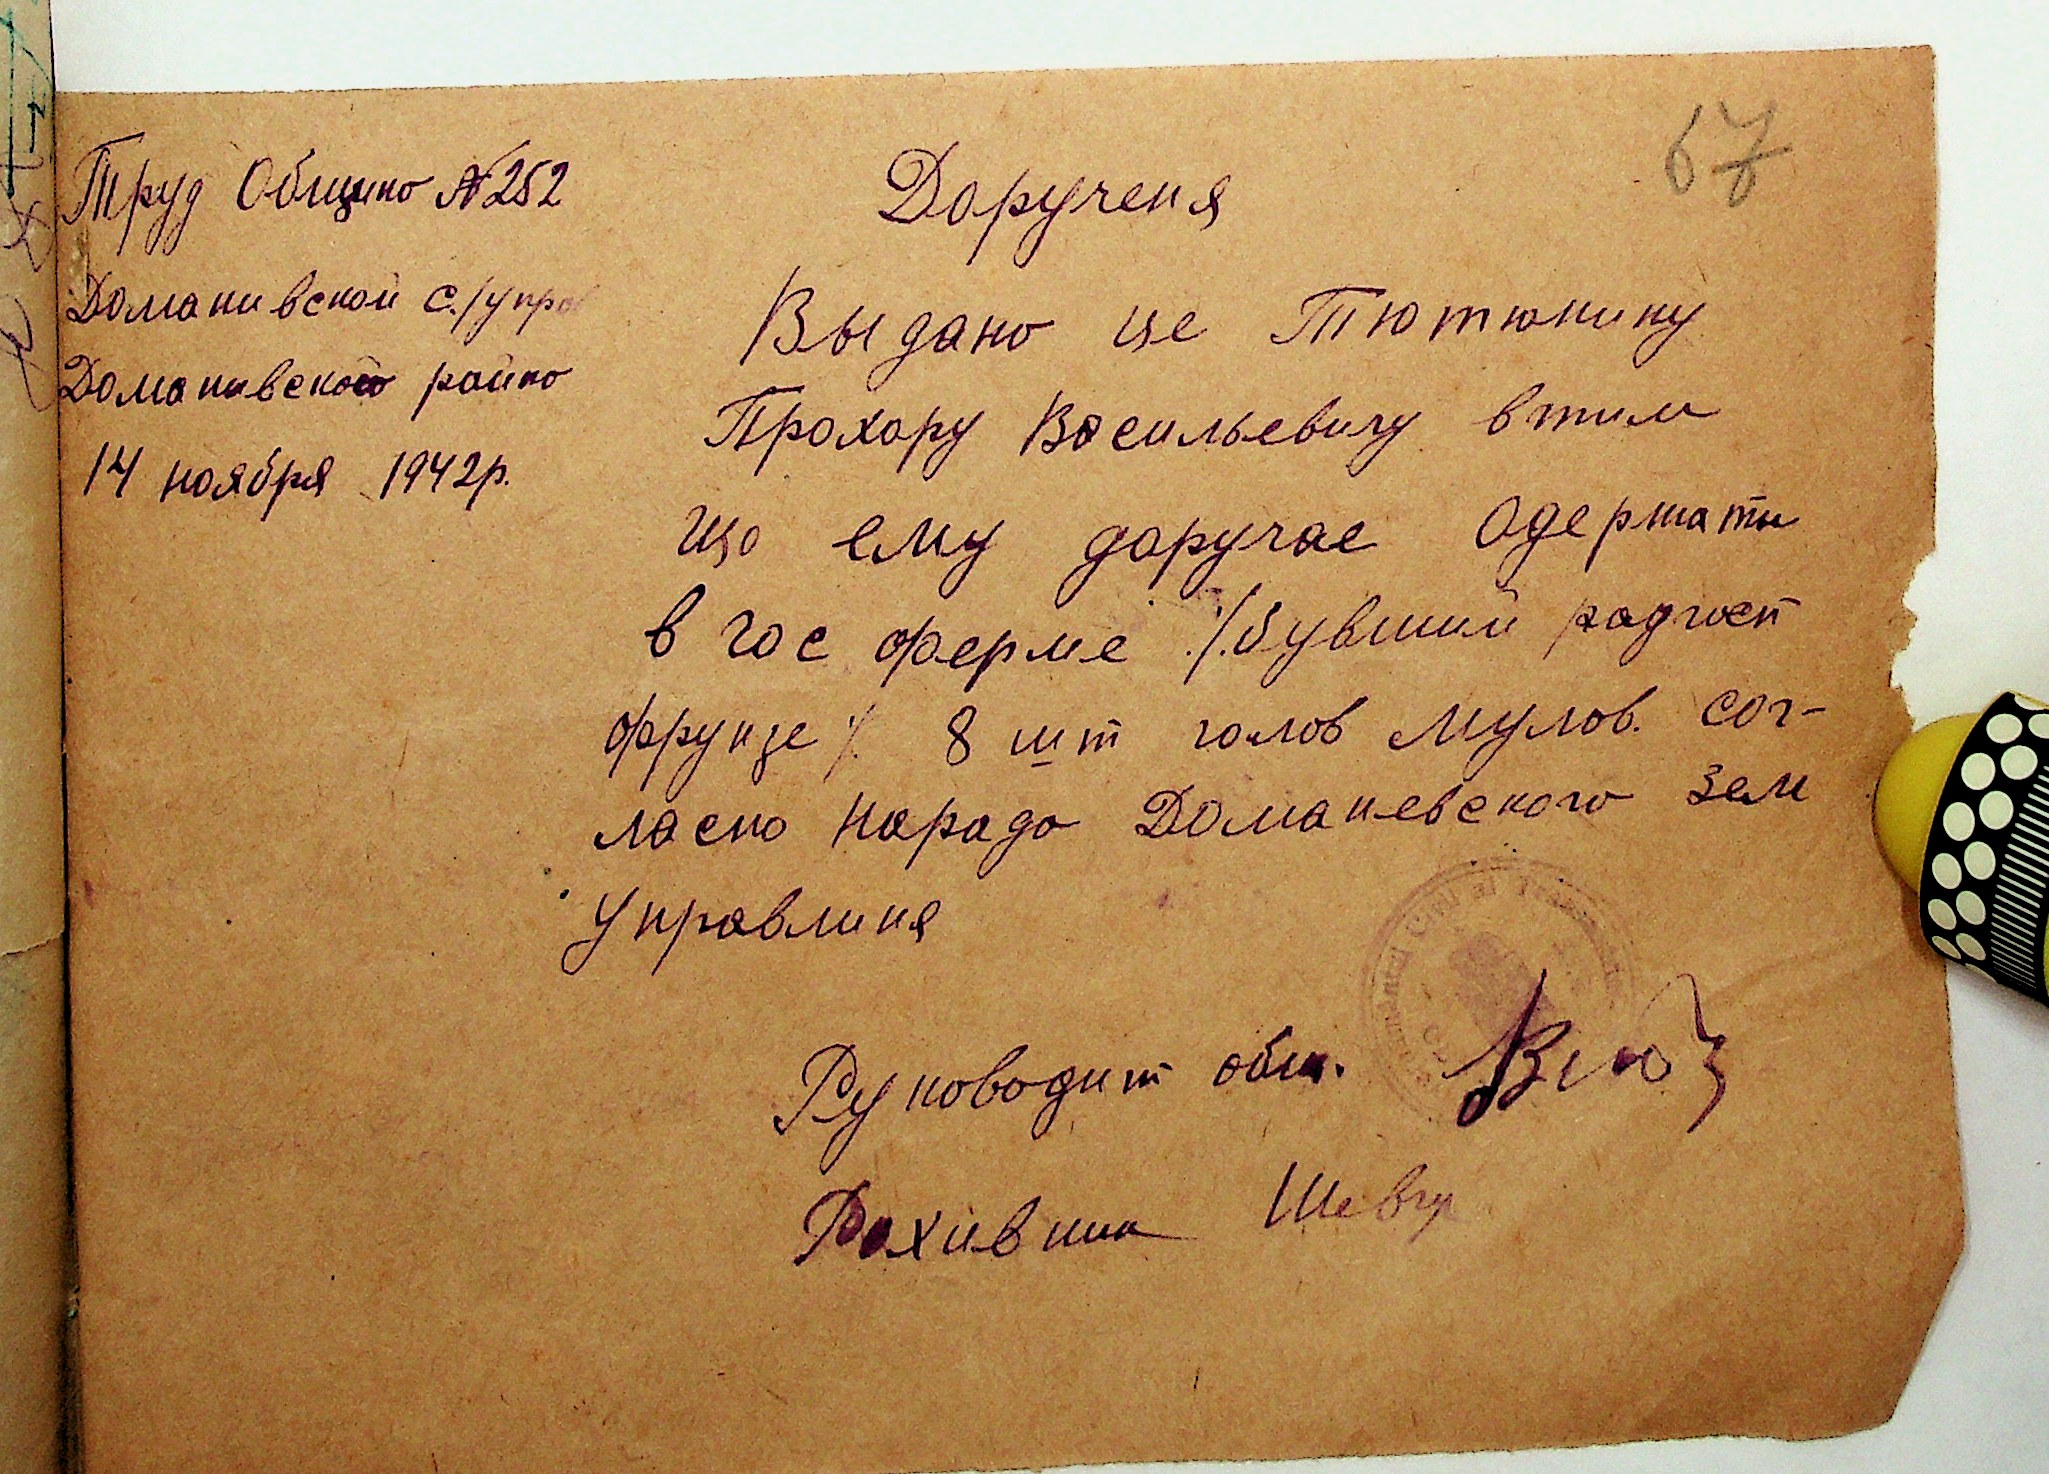 67
Труд Община №252
Доманивской с./упра
Доманивского района
14 ноября 1942р.
Доручення
Выдано це Тютюнину
Прохору Васильевичу втим
що ему доручае одержати
в гос ферме /.бувший радгосп
фрунзе/. 8 шт голов мулов. сог-
ласно наряда Доманевского зем
управлиня
Руководит общ.
Рахивник Шевчу